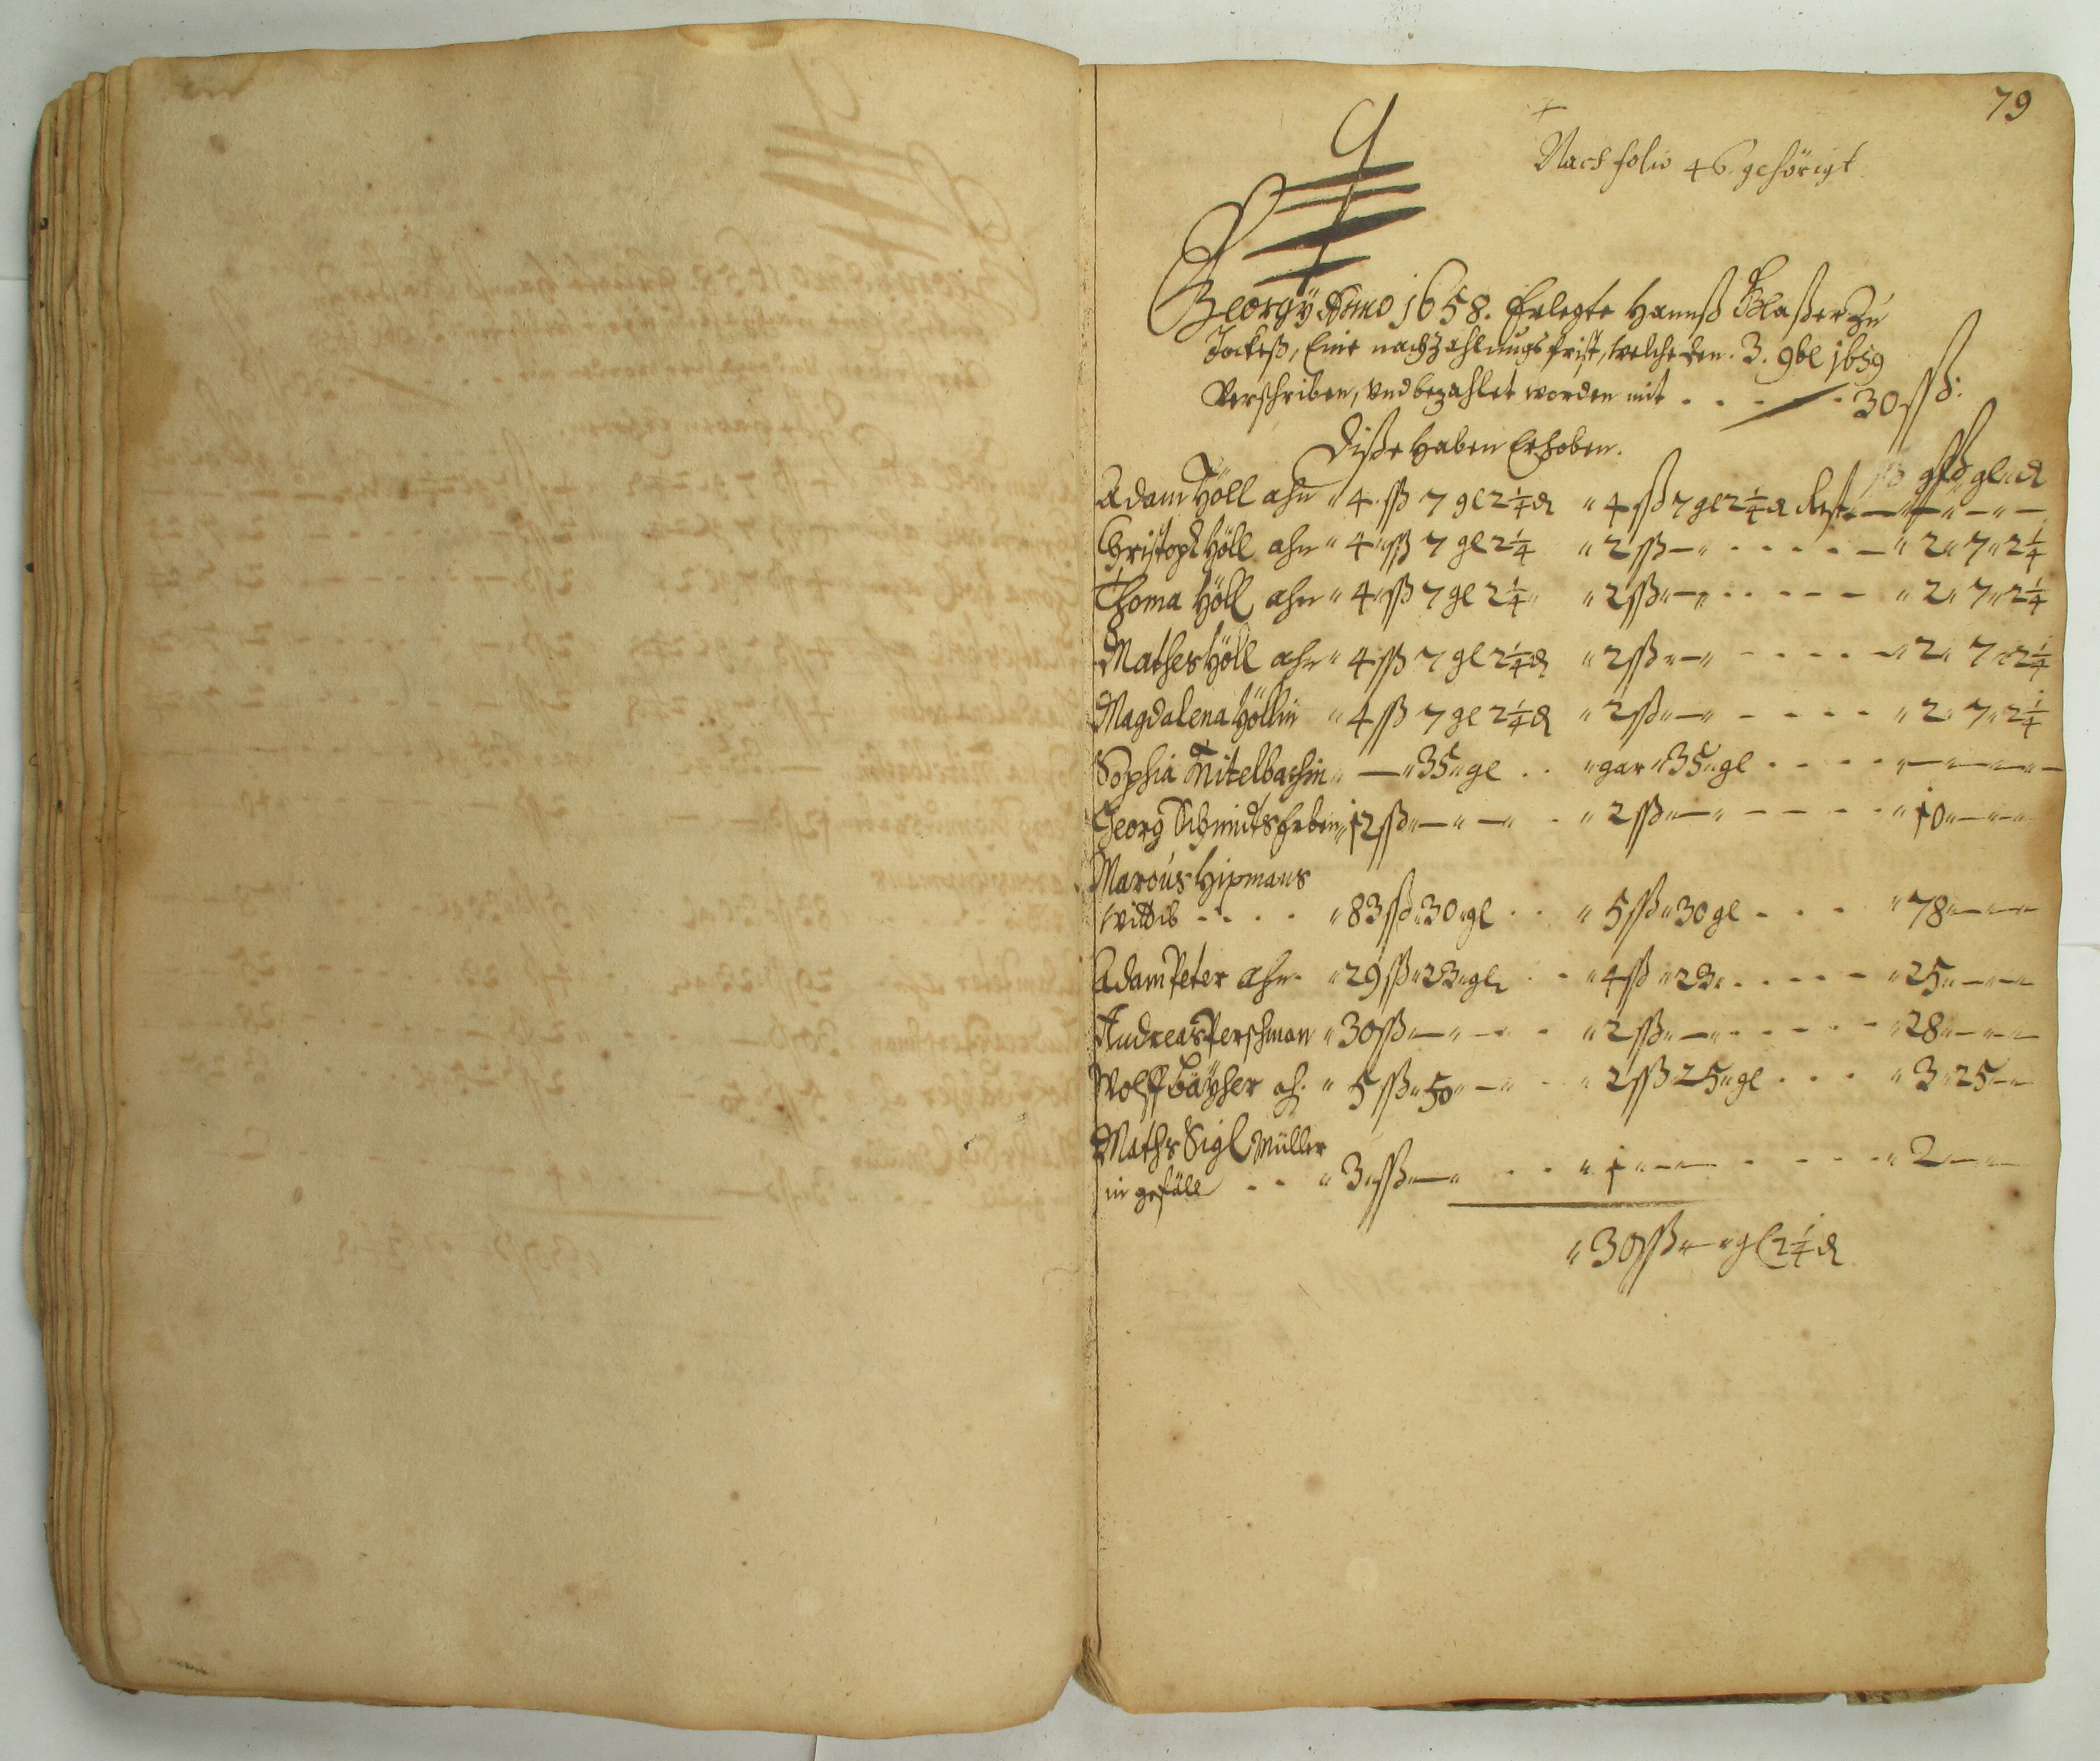 79
Nach folio 46. gehörigt
Georgÿ Anno 1658. Erlegte Hannß Glaßer Zu
Jockeß, Eine nachzahlungs frist, welche den. 3. 9bl 1659
Verschriben, und bezahlet worden mit . . . . 30 ßß:
Diße haben Erhoben.
ßß gl ₰
Adam Höll ahn " 4 ßß 7 gl 2¼ ₰ " 4 ßß 7 gl 2¼ ₰ Rest " — " — " —
Christoph Höll ahn " 4 " ßß 7 gl 2¼ " 2 ßß — " . . . . — " 2 " 7 " 2¼
Thoma Höll ahn " 4 " ßß 7 gl 2¼ " " 2 ßß " — " . . - - - " 2 " 7 " 2¼
Mathes Höll ahn " 4 ßß 7 gl 2¼ ₰ " 2 ßß " — " - - - - " 2 " 7 " 2¼
Magdalena Höllin " 4 ßß 7 gl 2¼ ₰ " 2 ßß " — " - - - - " 2 " 7 " 2¼
Sophia Knitelbachin " — " 35 " gl . . " gar " 35 " gl . . . . " — " — " —
Georg Schmidts Erben " 12 ßß " — " — " . " 2 ßß " — " - - - - " 10 " — " —
Marcus Hipmans
Wittib - . . . " 83 ßß " 30 " gl . . " 5 ßß " 30 gl - . . " 78 " — " —
Adam Peter ahn " 29 ßß " 23 " gl . - " 4 ßß " 23 " . . . . - " 25 " — " —
Andreas Perschman " 30 ßß " — " - . - " 2 ßß " — " . . . . - " 28 " — " —
Wolff Baÿher ah. " 5 ßß " 50 " — " . . " 2 ßß 25 " gl . . . " 3 " 25 — "
Maths Sigl Müller
in gefäll . . " 3 " ßß " — " . . " 1 " — " — . . . . " 2 " — " —
" 30 ßß " — " gl 2¼ ₰